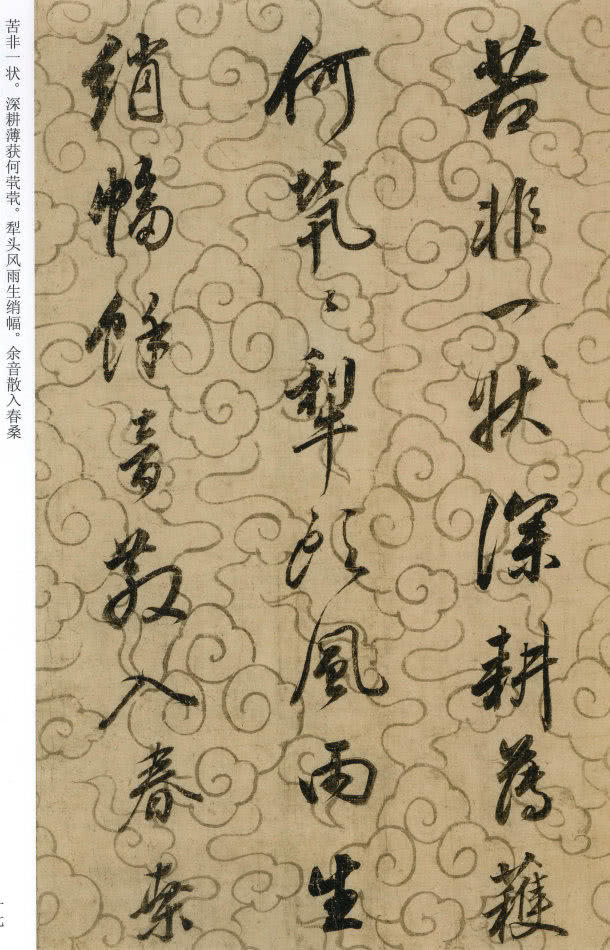 苦非一状深耕薄穫
何茕〻犁头風雨生
綃幅餘音散入春桑
苦非一状。深耕薄获何茕茕。犁头风雨生绡幅。余音散入春桑
一七